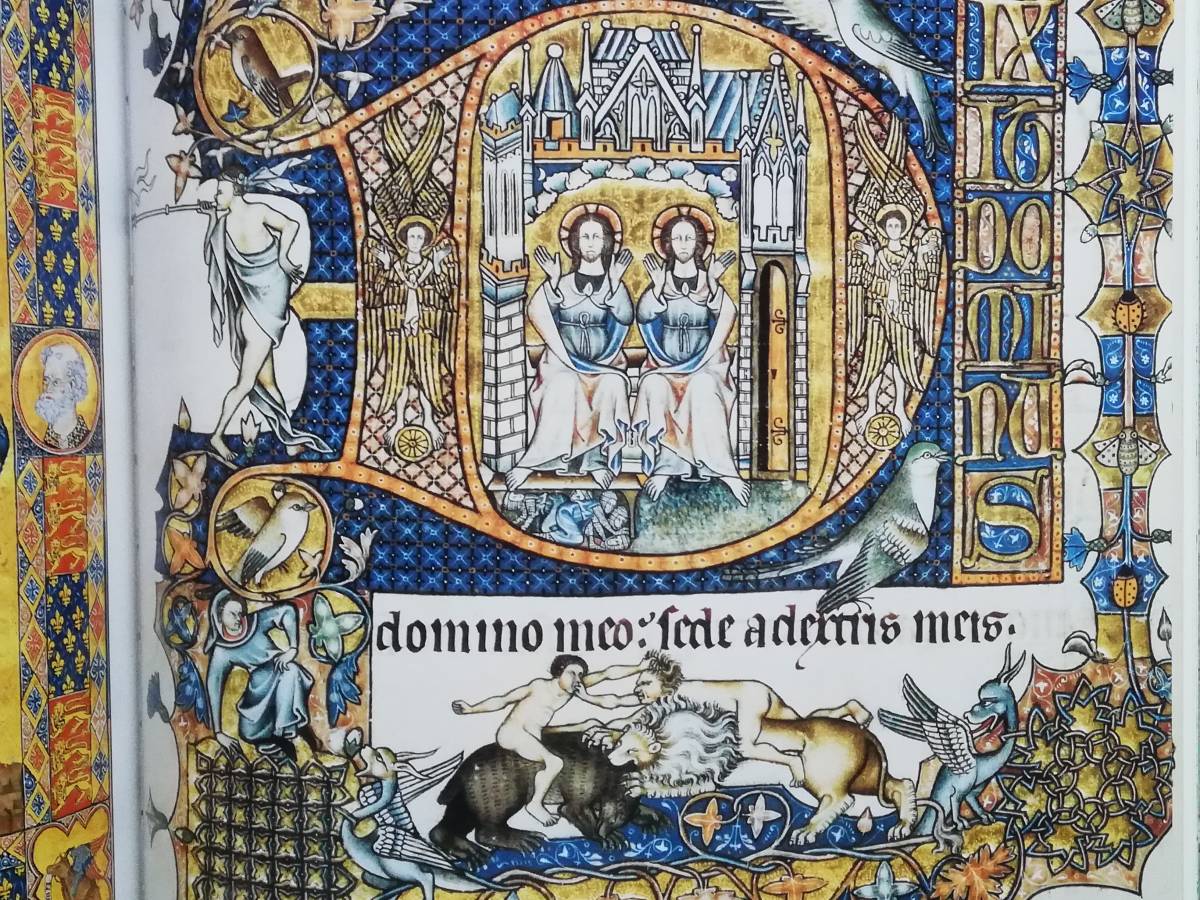 D
IX
IT
DO
MI
NU
S
domino meo: sede a dextris meis.